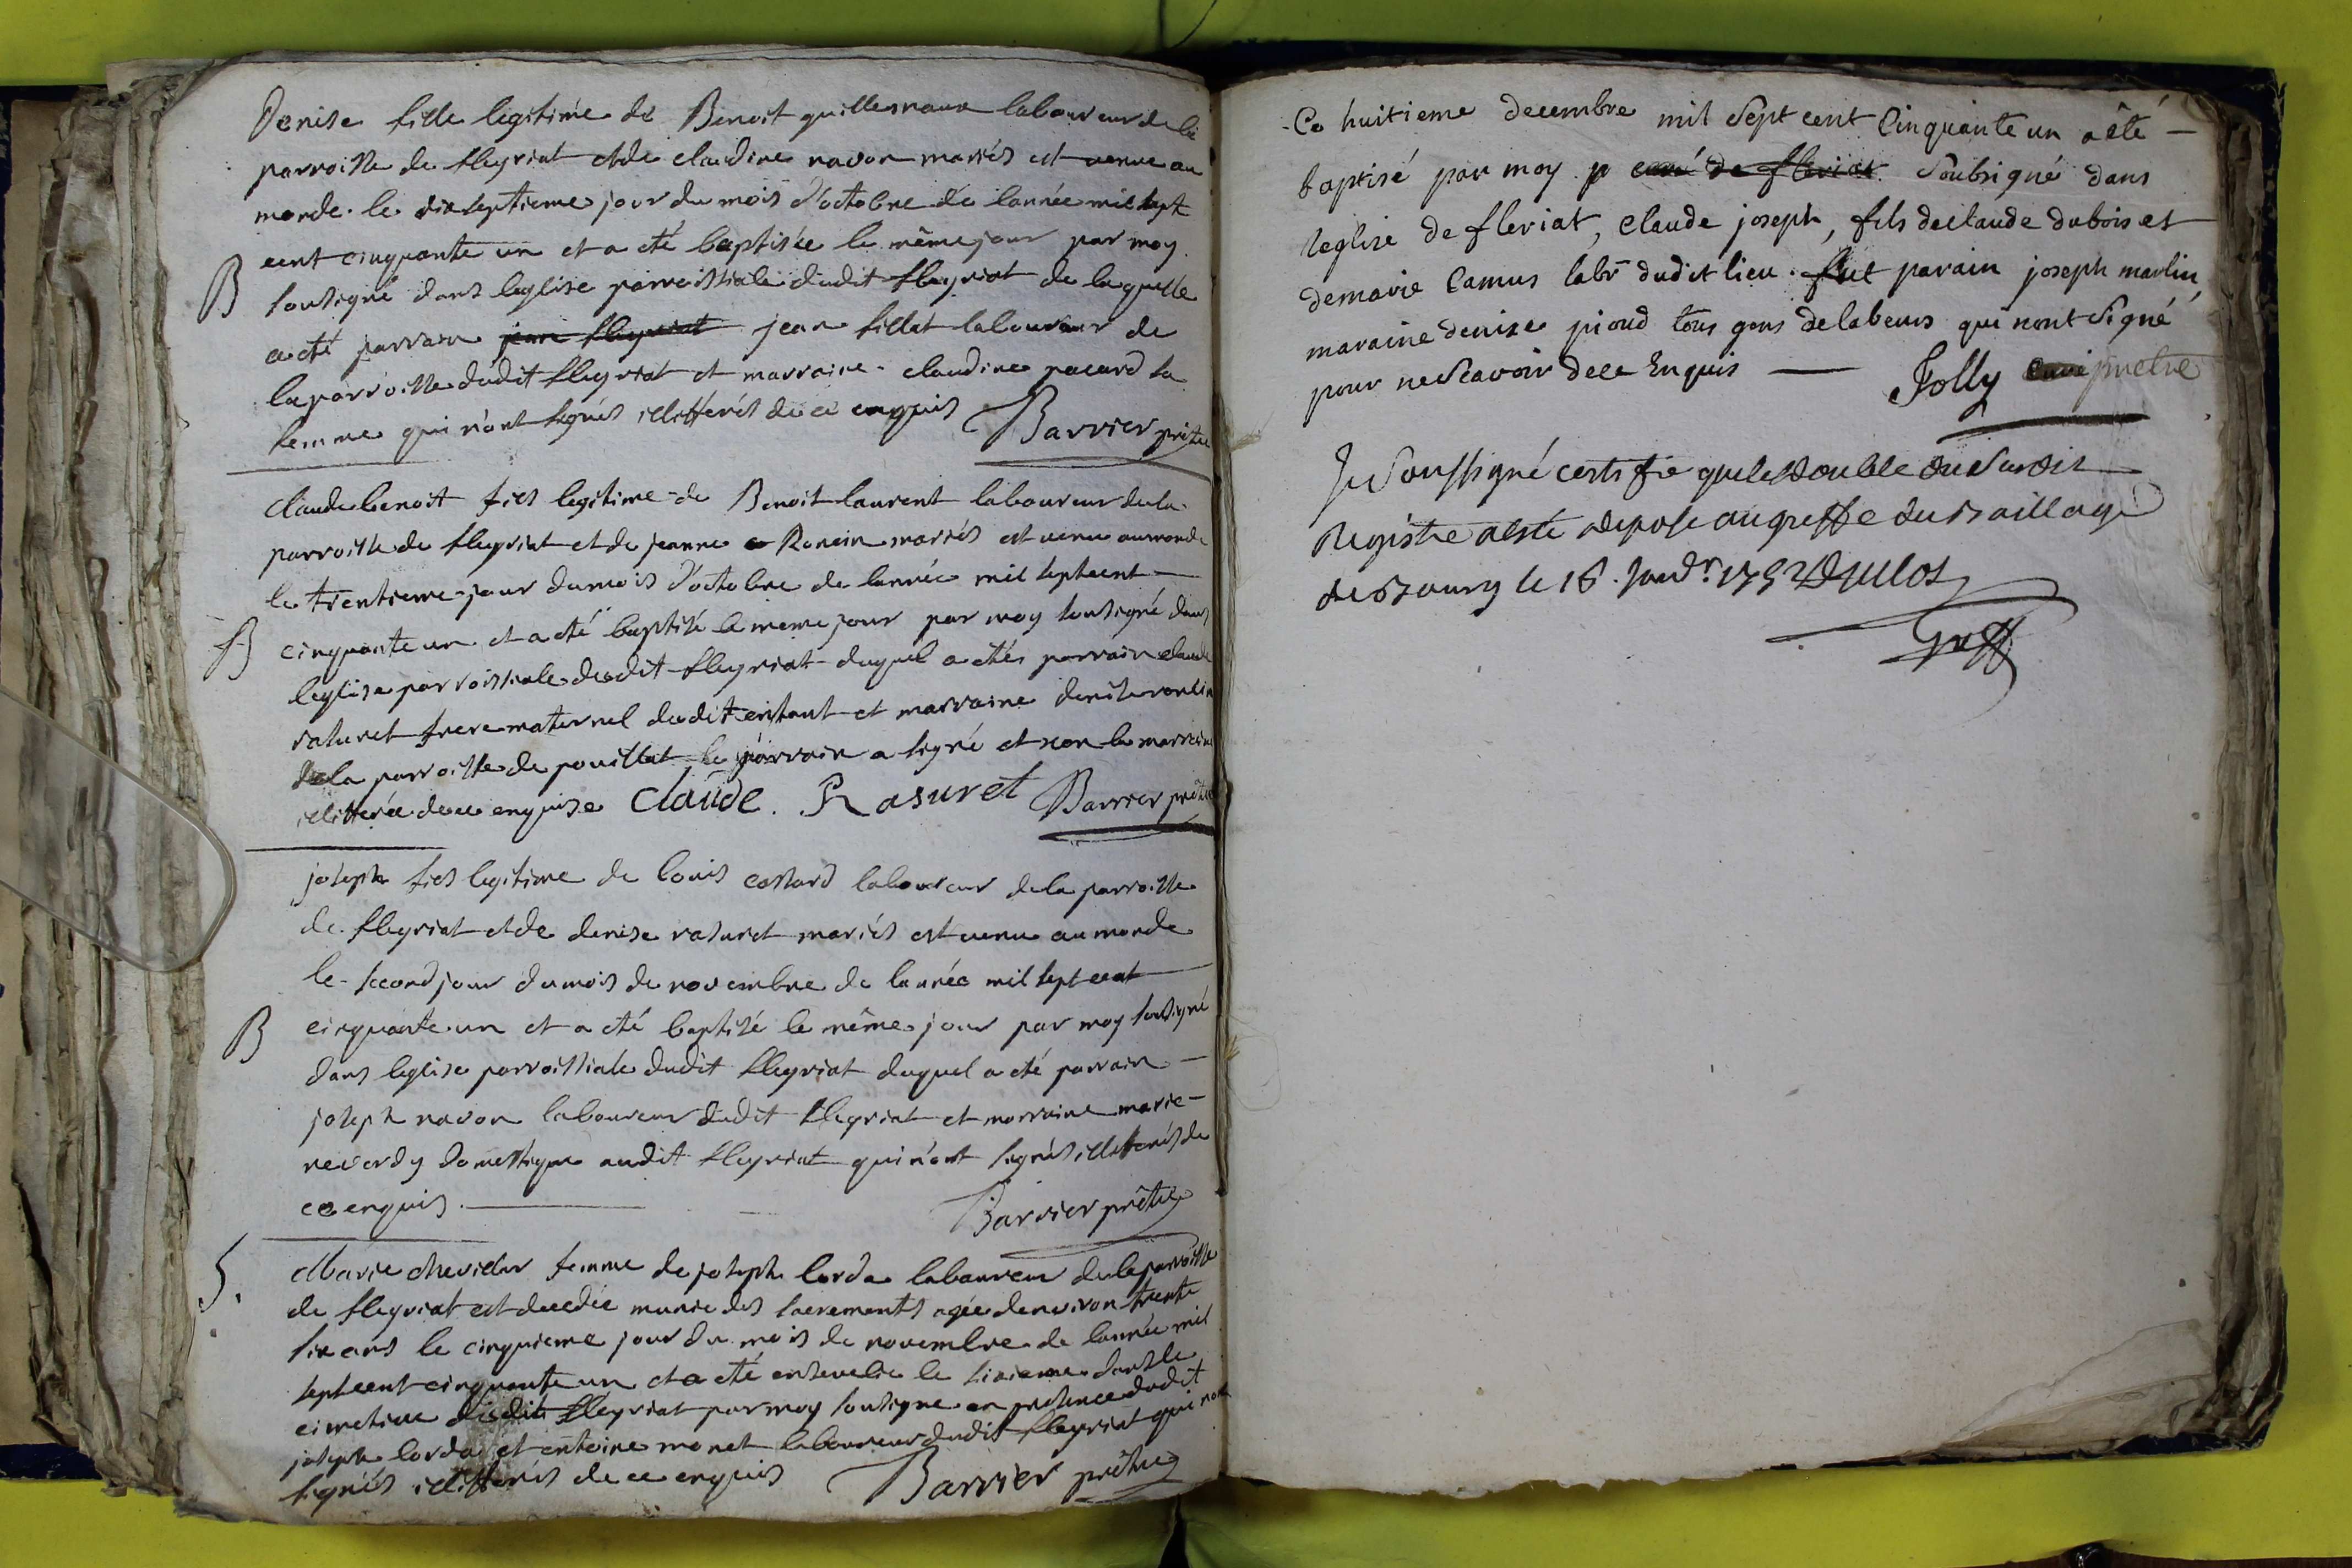 Denise fille legitime de Benoit guillermaux laboureur de la
parroisse de fleyriat et de claudine navon mariés est venue au
monde le dix septieme jour du mois d'octobre de lannée mil sept
B cent cinquante un et a été baptisée le même jour par moy
sousigné dans leglise parroissiale dudit fleyriat de laquelle
a été parrain jean fleyriat jean fillet laboureur de
la parroisse dudit fleyriat et marraine claudine pacard sa
femme qui n'ont signés illitterés de ce enquis Barrier prêtre
claude benoit fils legitime de Benoit laurent laboureur de la
parroisse de fleyriat et de jeanne Roncin mariés est venu au monde
le trentieme jour du mois d'octobre de lannée mil sept cent
B cinquante un et a été baptisé le meme jour par moy sousigné dans
leglise parroissiale dudit fleyriat duquel a été parrain claude
rasuret frere maternel dudit enfant et marraine denise
de la parroisse de pouillat le parrain a signé et non la marraine
illitterée de ce enquise Claude Rasuret Barrier prêtre
joseph fils legitime de louis cottard laboureur de la parroisse
de fleyriat et de denise rasuret mariés est venu au monde
le second jour du mois de novembre de lannée mil sept cent
B cinquante un et a été baptisé le même jour par moy sousigné
dans leglise parroissiale dudit fleyriat duquel a été parrain
joseph navon laboureur dudit fleyriat et marraine marie
neverdy domestique audit fleyriat qui n'ont signés illitterés de
ce enquis Barrier prêtre
S. Marie femme de joseph lorda laboureur de la parroisse
de fleyriat est decedée munie des sacrements agée denviron trente
six ans le cinquieme jour du mois de novembre de lannée mil
sept cent cinquante un et a été ensevelie le sixieme dans le
cimetiere dudit fleyriat par moy sousigne en presence dudit
joseph lorda et entoine monet laboureur dudit fleyriat qui n'ont
signés illitterés de ce enquis Barrier prêtre
Ce huitieme decembre mil sept cent Cinquante un a été
baptisé par moy p curé de fleriat Soubsigné dans
leglise de fleriat, claude joseph, fils de claude dubois et
de marie Camus labr dudit lieu. fut parain joseph marlin,
maraine denise pioud tous gens de labeurs qui nont signé
pour ne scavoir de ce Enquis Jolly curé pretre
Je Soussigné certifie que le double du susdit
Registre a esté deposé au greffe du Baillage
de Bourg le 18. Janvr 1752
Greff